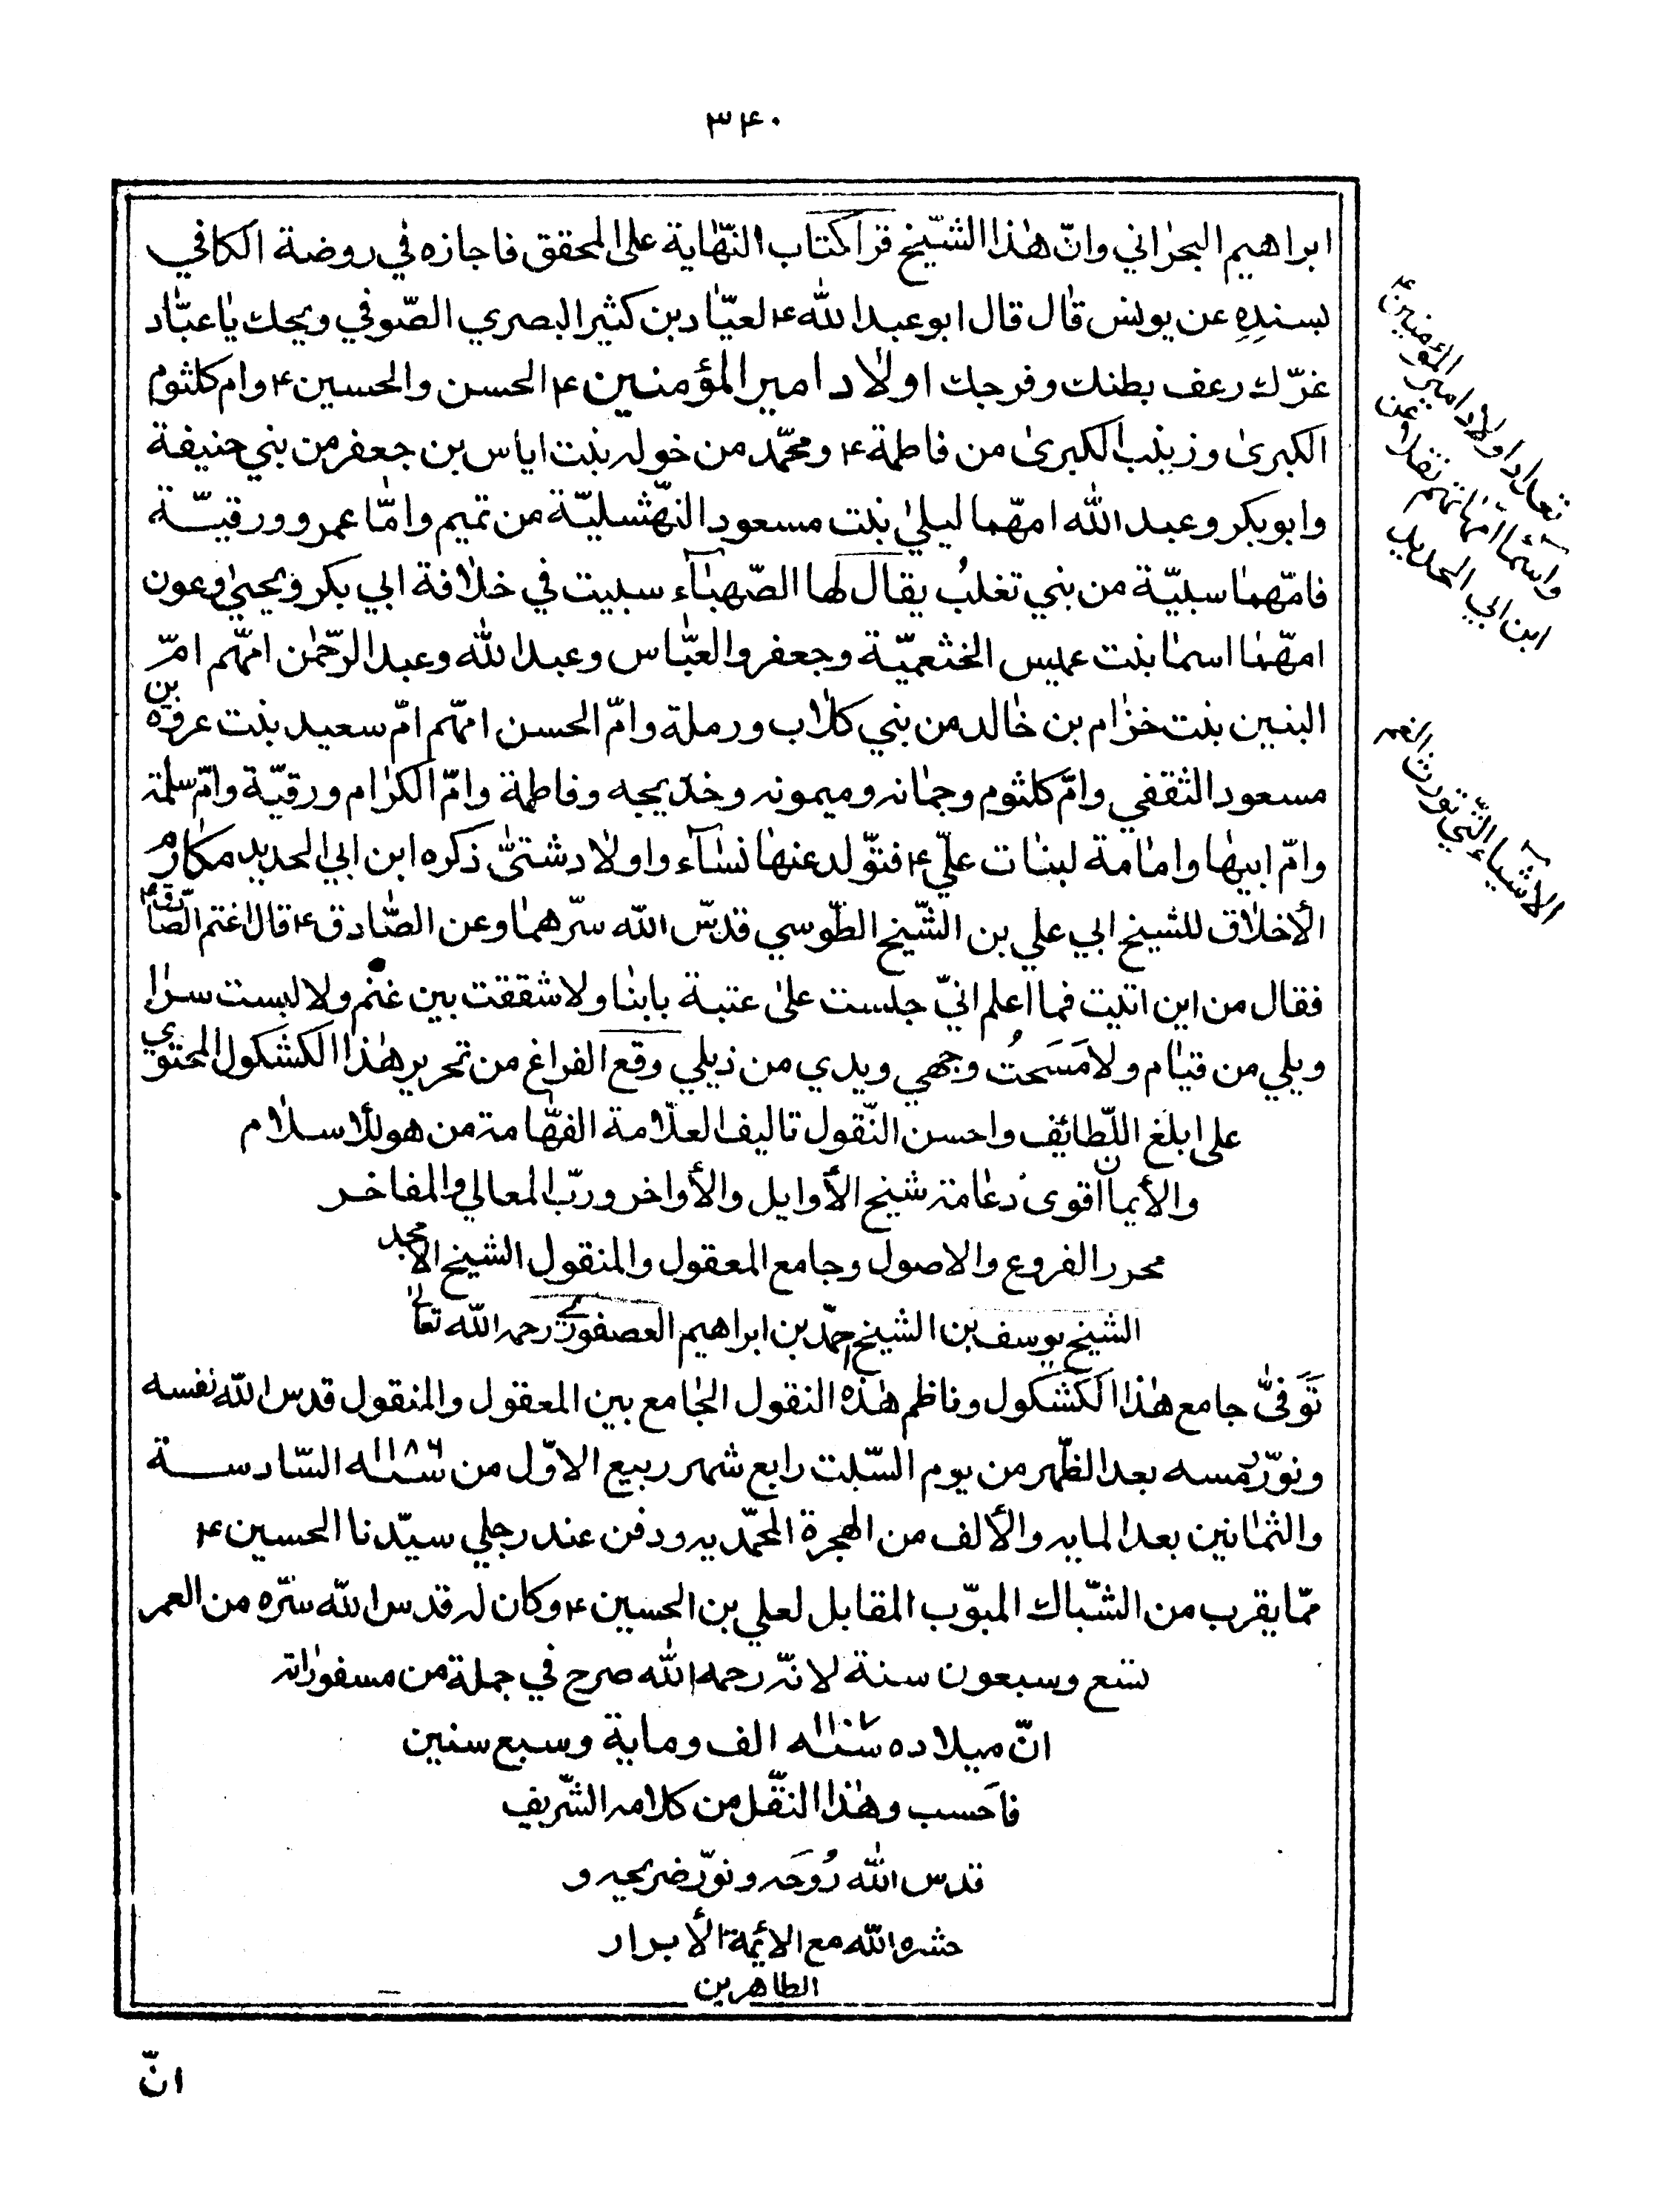 ۳۴۰
ابراهيم البحراني وانّ هذا الشّيخ قرأ كتاب النّهاية على المحقق فاجازه في روضة الكافي
بسنده عن يونس قال قال ابو عبد الله ۴ لعبّاد بن كثير البصري الصّوفي ويحك يا عبّاد
غرّك رعف بطنك وفرجك اولاد امير المؤمنين ۴ الحسن والحسين ۴ وام كلثوم
الكبرى وزينب الكبرى من فاطمة ۴ ومحمّد من خوله بنت اياس بن جعفر من بني حنيفة
وابو بكر وعبد الله امهما ليلى بنت مسعود النّهشليّة من تميم وامّا عمر و ورقيّة
فامّهما سبيّة من بني تغلب يقال لها الصّهباء سبيت في خلافة ابي بكر ويحيى وعون
امهّما اسما بنت عميس الخثعميّة وجعفر والعبّاس وعبد الله وعبد الرّحمن امّهم امّ
البنين بنت خزام بن خالد من بني كلاب ورملة وامّ الحسن امّهم امّ سعيد بنت عروة بن
مسعود الثقفي وامّ كلثوم وجمانه وميمونه وخديجه وفاطمة وامّ الكرام ورقيّة وامّ سلمة
وامّ ابيها وامامة لبنات عليّ ۴ فتوّلد عنها نسآء واولاد شتىّ ذكره ابن ابي الحديد مكارم
الأخلاق للشيخ ابي علي بن الشّيخ الطّوسي قدّس الله سرّهما وعن الصّادق ۴ قال اغتم الصّادق ۴
فقال من اين اتيت فما اعلم انيّ جلست على عتبة بابنا ولا شققت بين غنم ولا لبست سرا
ويلي من قيام ولا مَسَحتُ وجهي ويدي من ذيلي وقع الفراغ من تحرير هذا الكشكول المحتوي
على ابلغ اللّطائف واحسن النّقول تاليف العلّامة الفهّامة من هو للأسلام
والأيمان اقوى دعامة شيخ الأوايل والأواخر وربّ المعالي والمفاخر
محرر الفروع والاصول وجامع المعقول والمنقول الشيخ الامجد
الشيخ يوسف بن الشيخ احمّد بن ابراهيم العصفوري رحمه الله تعالى
تَوَفىّ جامع هذا الكشكول وناظم هذه النقول الجامع بين المعقول والمنقول قدس الله نفسه
ونوّر رمسه بعد الظّهر من يوم السّبت رابع شهر ربيع الاوّل من سنه ۱۱۸۶ السّادسة
والثمانين بعد المايه والألف من الهجرة المحمّديه ودفن عند رجلي سيّدنا الحسين ۴
ممّا يقرب من الشّباك المبوّب المقابل لعلي بن الحسين ۴ وكان له قدس الله سرّه من العمر
تسع وسبعون سنة لانّه رحمه الله صرح في جملة من مسفوراته
انّ ميلاده سنه ۱۱۰۷ الف وماية وسبع سنين
فاَحسب وهذا النقّل من كلامه الشّريف
قدس الله رُوحَه ونوّر ضريحه و
حشره الله مع الائمّة الأبرار
الطاهرين
تعداد اولاد امير المؤمنين ۴
واسماء امّهاتهم نقلا عن
ابن ابي الحديد
الاشياء الّتي تورث الغم
انّ